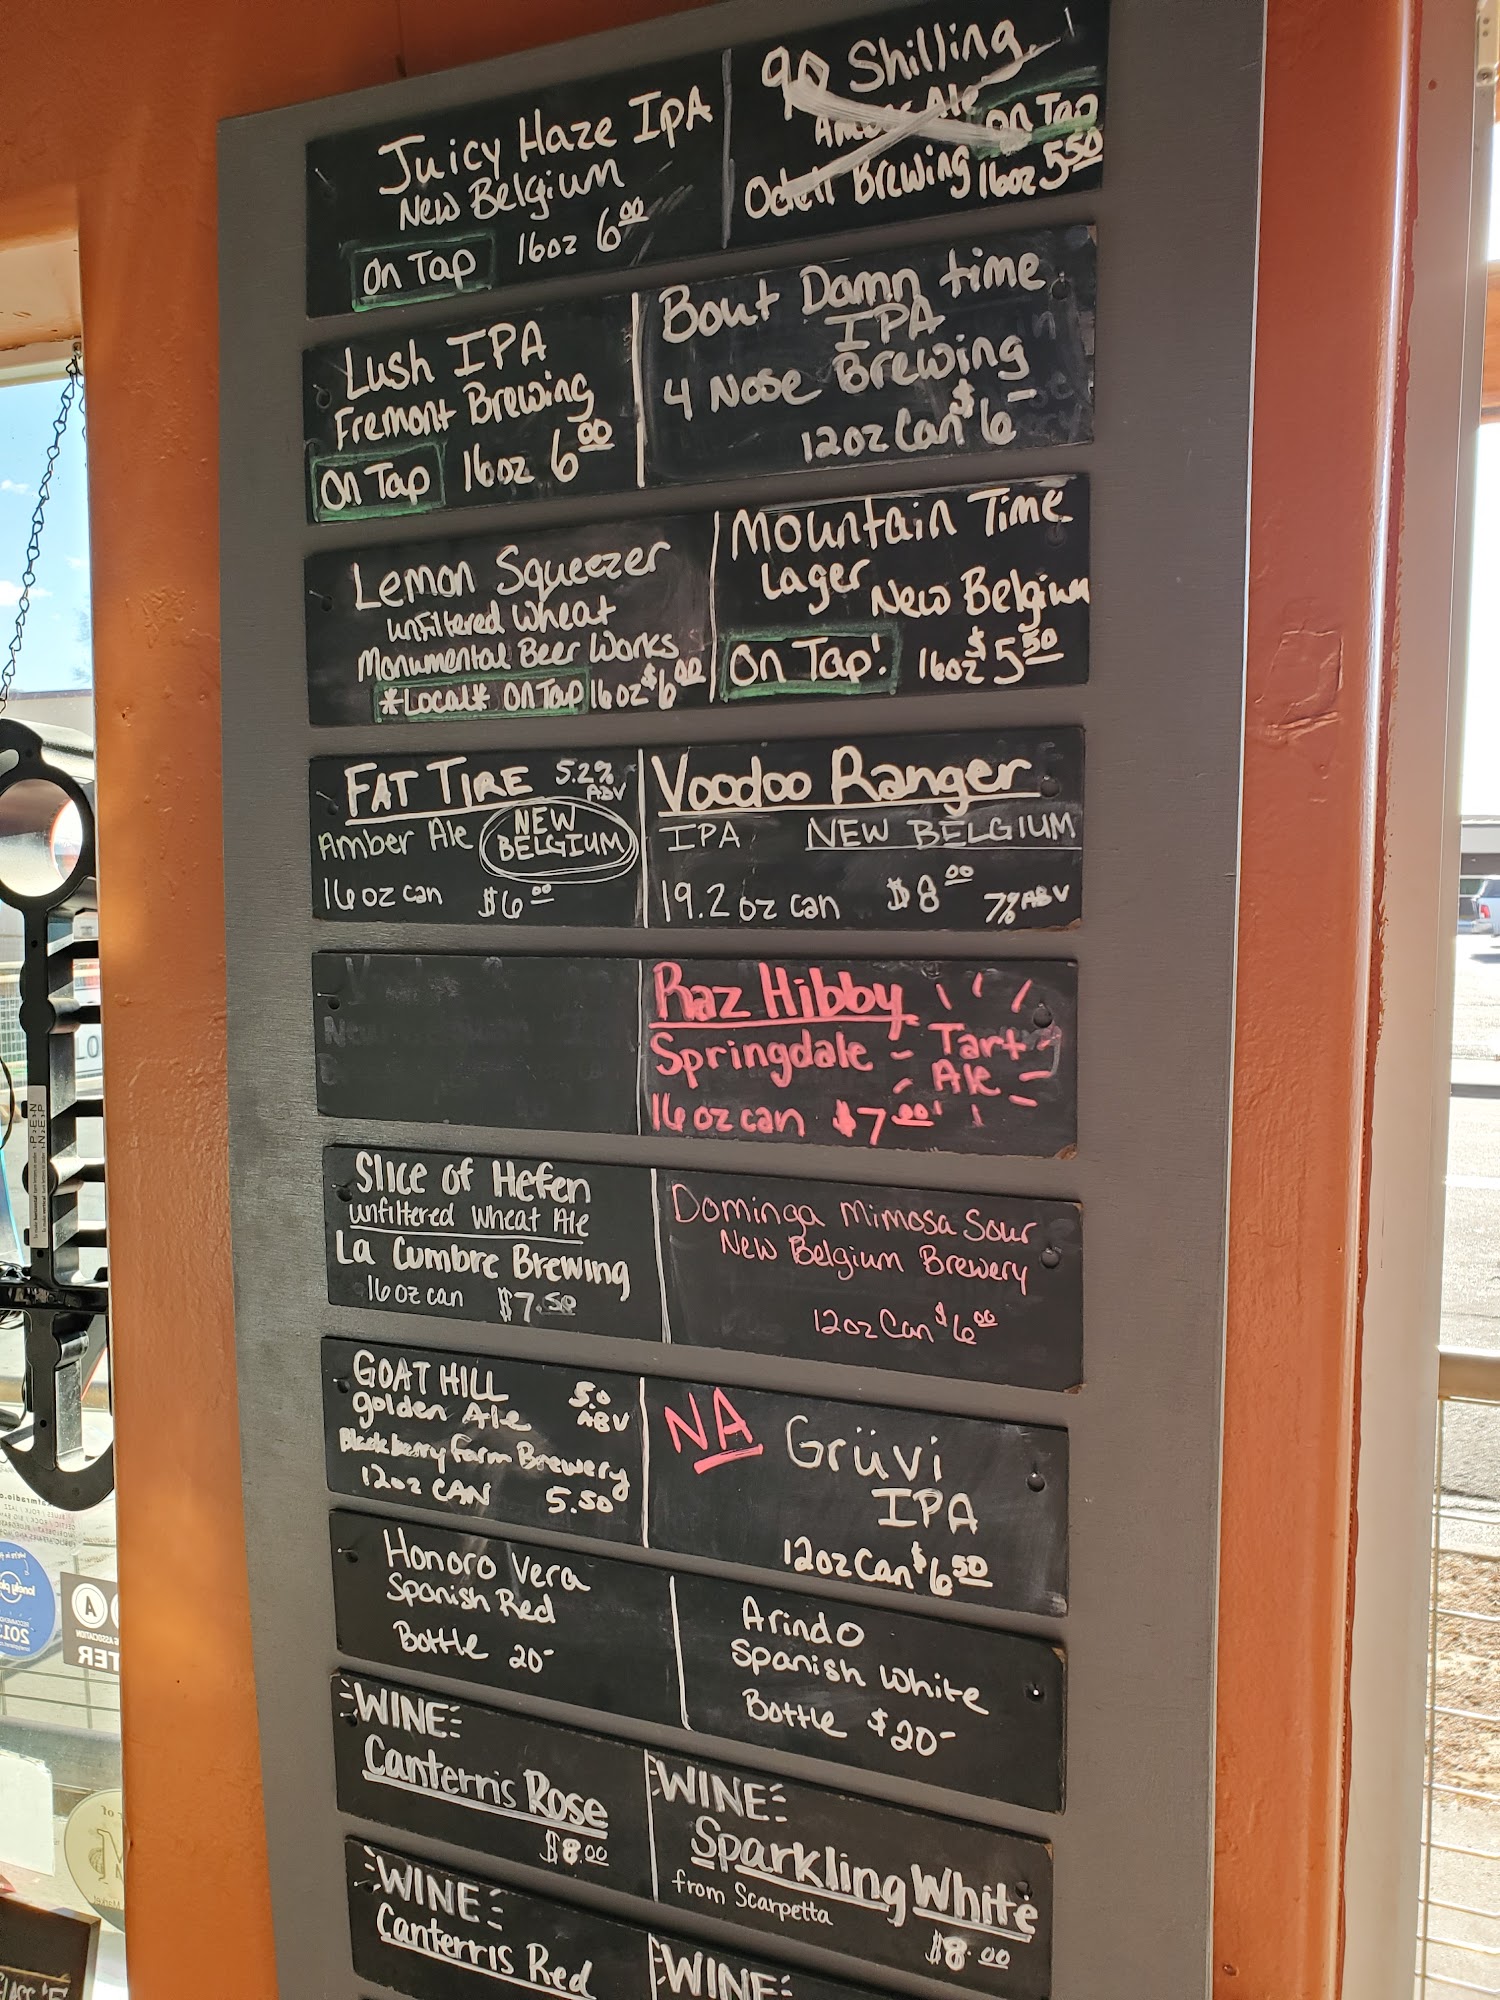 Juicy Haze IPA
New Belgium
On Tap 16oz 6.00
90 Shilling
Amber Ale On Tap
Odell Brewing 16oz 5.50
Lush IPA
Fremont Brewing
On Tap 16oz 6.00
Bout Damn time
IPA
4 Nose Brewing
12oz Can $6-
Lemon Squeezer
unfiltered Wheat
Monumental Beer Works
*Local* On Tap 16oz $6.00
Mountain Time
Lager New Belgium
On Tap! 16oz $5.50
FAT TIRE 5.2% ABV
Amber Ale NEW BELGIUM
16oz can $6.00
Voodoo Ranger
IPA NEW BELGIUM
19.2oz can $8.00 7% ABV
Raz Hibby
Springdale - Tart
Ale
16oz can $7.00
Slice of Hefen
unfiltered Wheat Ale
La Cumbre Brewing
16oz can $7.50
Dominga Mimosa Sour
New Belgium Brewery
12oz Can $6.00
GOAT HILL 5.0
golden Ale ABV
Blackberry Farm Brewery
12oz CAN 5.50
NA Grüvi
IPA
12oz Can $6.50
Honoro Vera
Spanish Red
Bottle 20-
Arindo
Spanish White
Bottle $20-
WINE
Canterris Rose
$8.00
WINE
Sparkling White
from Scarpetta
$8.00
WINE
Canterris Red
WINE